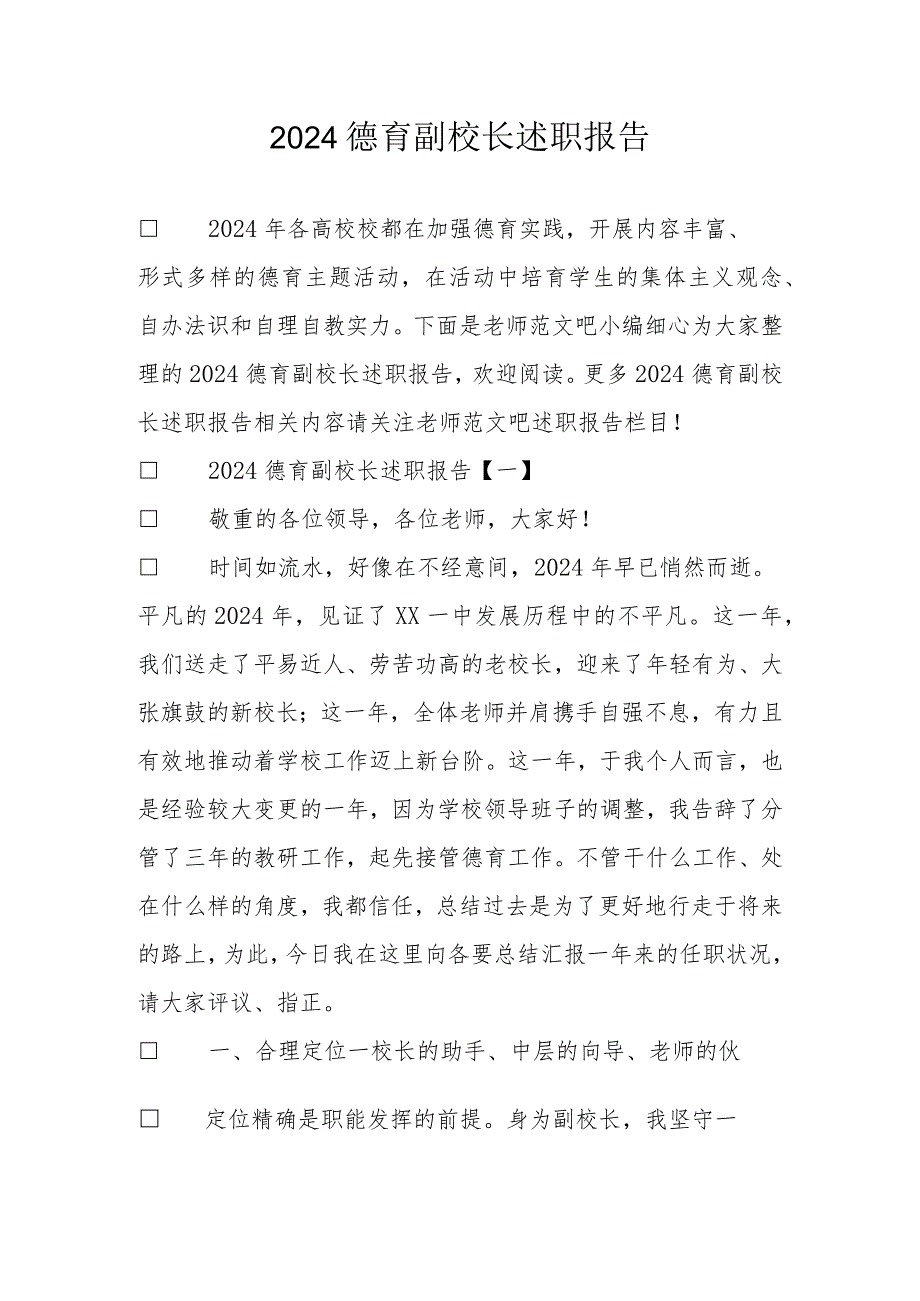 2024德育副校长述职报告
□ 2024年各高校校都在加强德育实践，开展内容丰富、
形式多样的德育主题活动，在活动中培育学生的集体主义观念、
自办法识和自理自教实力。下面是老师范文吧小编细心为大家整
理的2024德育副校长述职报告，欢迎阅读。更多2024德育副校
长述职报告相关内容请关注老师范文吧述职报告栏目！
□ 2024德育副校长述职报告【一】
□ 敬重的各位领导，各位老师，大家好！
□ 时间如流水，好像在不经意间，2024年早已悄然而逝。
平凡的2024年，见证了XX一中发展历程中的不平凡。这一年，
我们送走了平易近人、劳苦功高的老校长，迎来了年轻有为、大
张旗鼓的新校长；这一年，全体老师并肩携手自强不息，有力且
有效地推动着学校工作迈上新台阶。这一年，于我个人而言，也
是经验较大变更的一年，因为学校领导班子的调整，我告辞了分
管了三年的教研工作，起先接管德育工作。不管干什么工作、处
在什么样的角度，我都信任，总结过去是为了更好地行走于将来
的路上，为此，今日我在这里向各要总结汇报一年来的任职状况，
请大家评议、指正。
□ 一、合理定位一校长的助手、中层的向导、老师的伙
□ 定位精确是职能发挥的前提。身为副校长，我坚守一